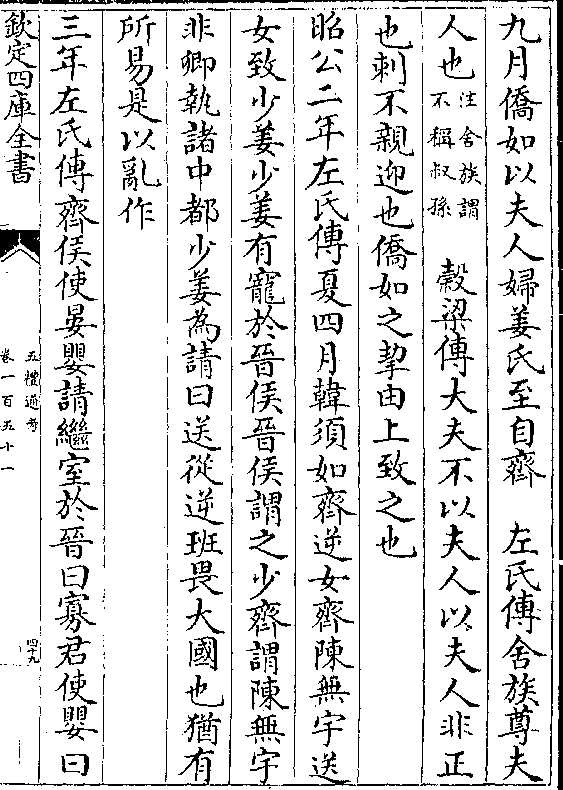 九月僑如以夫人婦姜氏至自齊　左氏傳舍族尊夫
人也注舍族謂不稱叔孫　穀梁傳大夫不以夫人以夫人非正
也刺不親迎也僑如之挈由上致之也
昭公二年左氏傳夏四月韓須如齊逆女齊陳無宇送
女致少姜少姜有寵於晉侯晉侯謂之少齊謂陳無宇
非卿執諸中都少姜為請曰送從逆班畏大國也猶有
所易是以亂作
三年左氏傳齊侯使晏嬰請繼室於晉曰寡君使嬰曰
欽定四庫全書
五禮通考
卷一百五十一
四十九